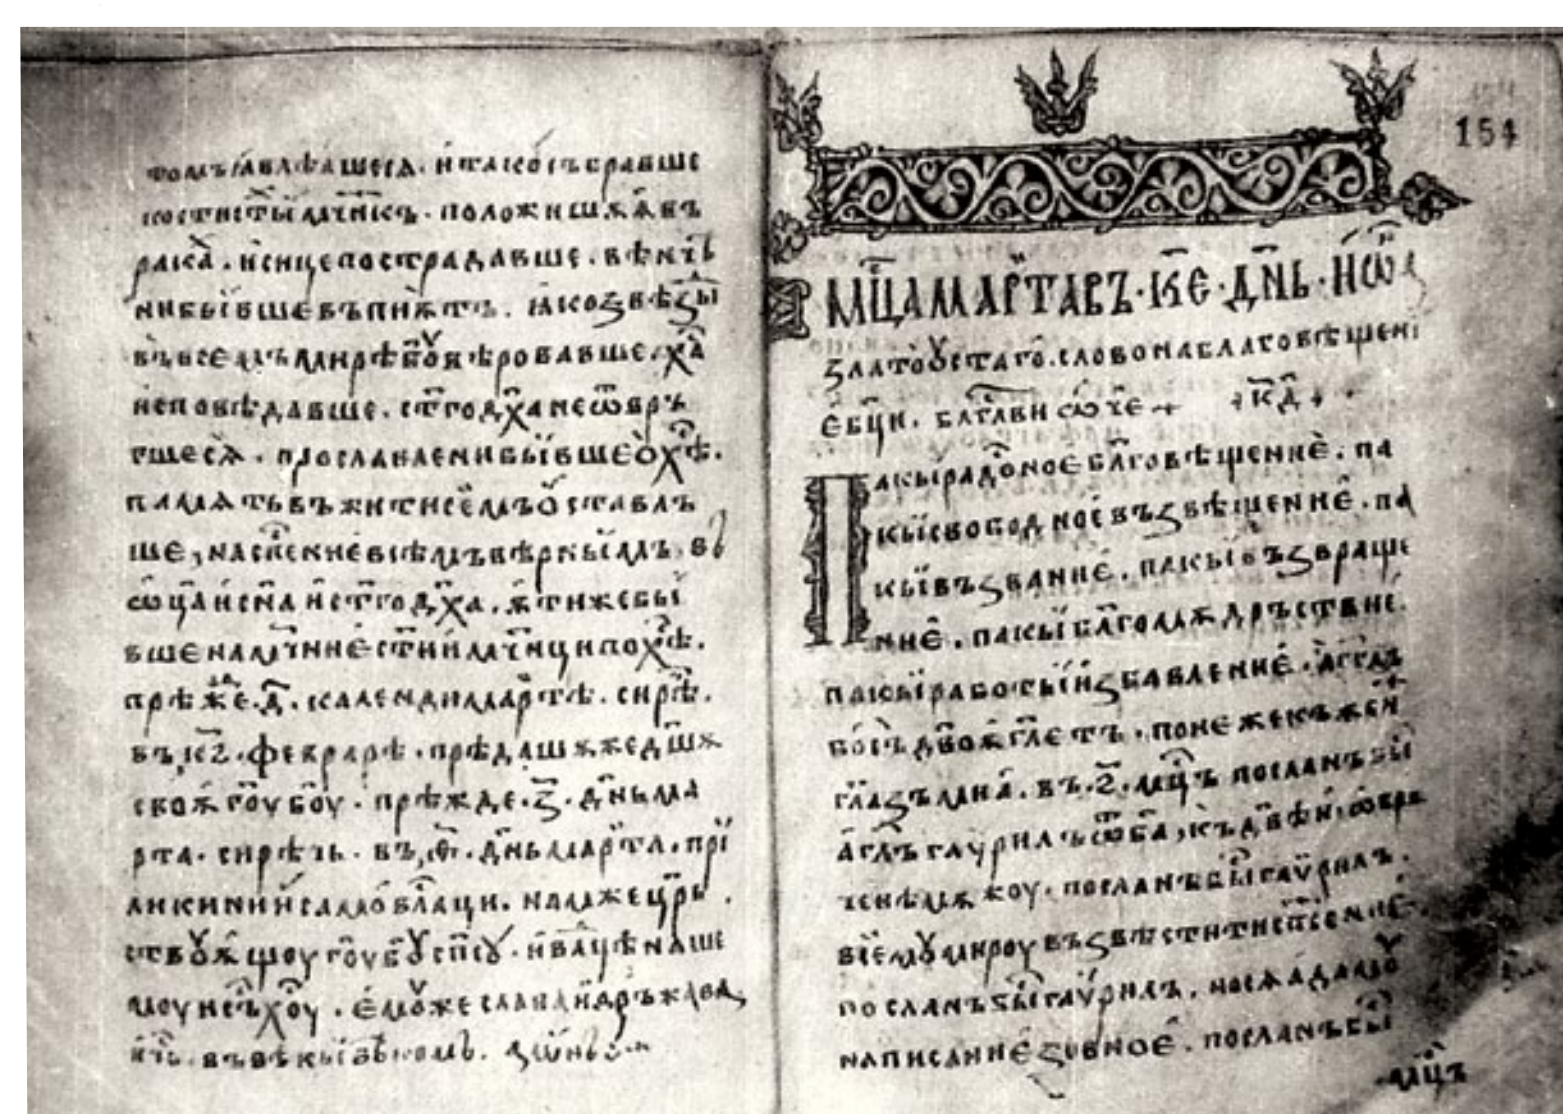 томъ ꙗвлѣа̀шесѧ. и҆ тако̀ събравше
кости ст҃ыи мч҃нкъ. положишѫ ѧ҆ въ
рака̀. и҆ сице пострадавше. вѣнч҃ь
ни бывше въ пи́ѫтъ. ꙗко ѕвѣзы
въ всемъ мирѣ бо҃у вѣровавше, х҃а
и҆сповѣдавше. ст҃го дх҃а не ѿвръ
гшесѧ̀. прославлени бывше ѡ҆ х҃ѣ.
памѧть въ житисе́мъ ѡ҆ставль
ше, на сп҃ениѐ всѣмъ вѣрныимъ. въ
ѡ҆ц҃а и҆ сн҃а и҆ ст҃го дх҃а. ѫ҆ти же бы
вше на мч҃ние ст҃ии мч҃нци по х҃ѣ.
прѣж҃е. д҃. календи мартѣ. сирѣ҃.
въ к҃ѕ. февраре. прѣдашѫ же дш҃ѫ
своѫ̀ го҃у бо҃у. прѣжде. з҃. дн҃ь ма
рта. сирѣчь. въ, ѳ҃. дн҃ь марта. при
ликинии само̀ѡблаци. нам же цр҃ь
ствꙋѫ̀щоу го҃у бꙋ҃ сп҃сꙋ.
моу ис҃ъ хо҃у. е҆мꙋже слава и҆ дръжава,
нн҃ѣ. въ вѣкы вѣкомь. амин҃ь
154
мц҃а марта въ. к҃е. дн҃ь. и҆ѡⷩ҇
златоꙋстаго. слово на благовѣщени
е бц҃и. благⷭ҇ви ѡ҆ч҃е к҃д
Пакы радⷭ҇ное бл҃говѣщеннѐ. па
кы свободное възвѣщеннѐ. па
кы възваннѐ. пакы възвраще
ннѐ. пакы бл҃гомѫдръствне.
пакы работы и҆збавленнѐ. а҆гг҃лъ
бо съ дв҃оѫ̀ гл҃етъ. понеже къ жен
гл҃а змиа̀. въ. ѕ҃. мц҃ъ посланъ бы
а҆гг҃лъ гаѵрилъ ѿ б҃а, къ дв҃ѣ и҆. ѡбрѫ
ченѣ мѫжоу. посланъ бы гаѵрилъ.
всемꙋ мироу възвѣстити сп҃сение.
посланъ бы гаѵрилъ. носѧ а҆дамо
написанниѐ зовноѐ. посланъ бы